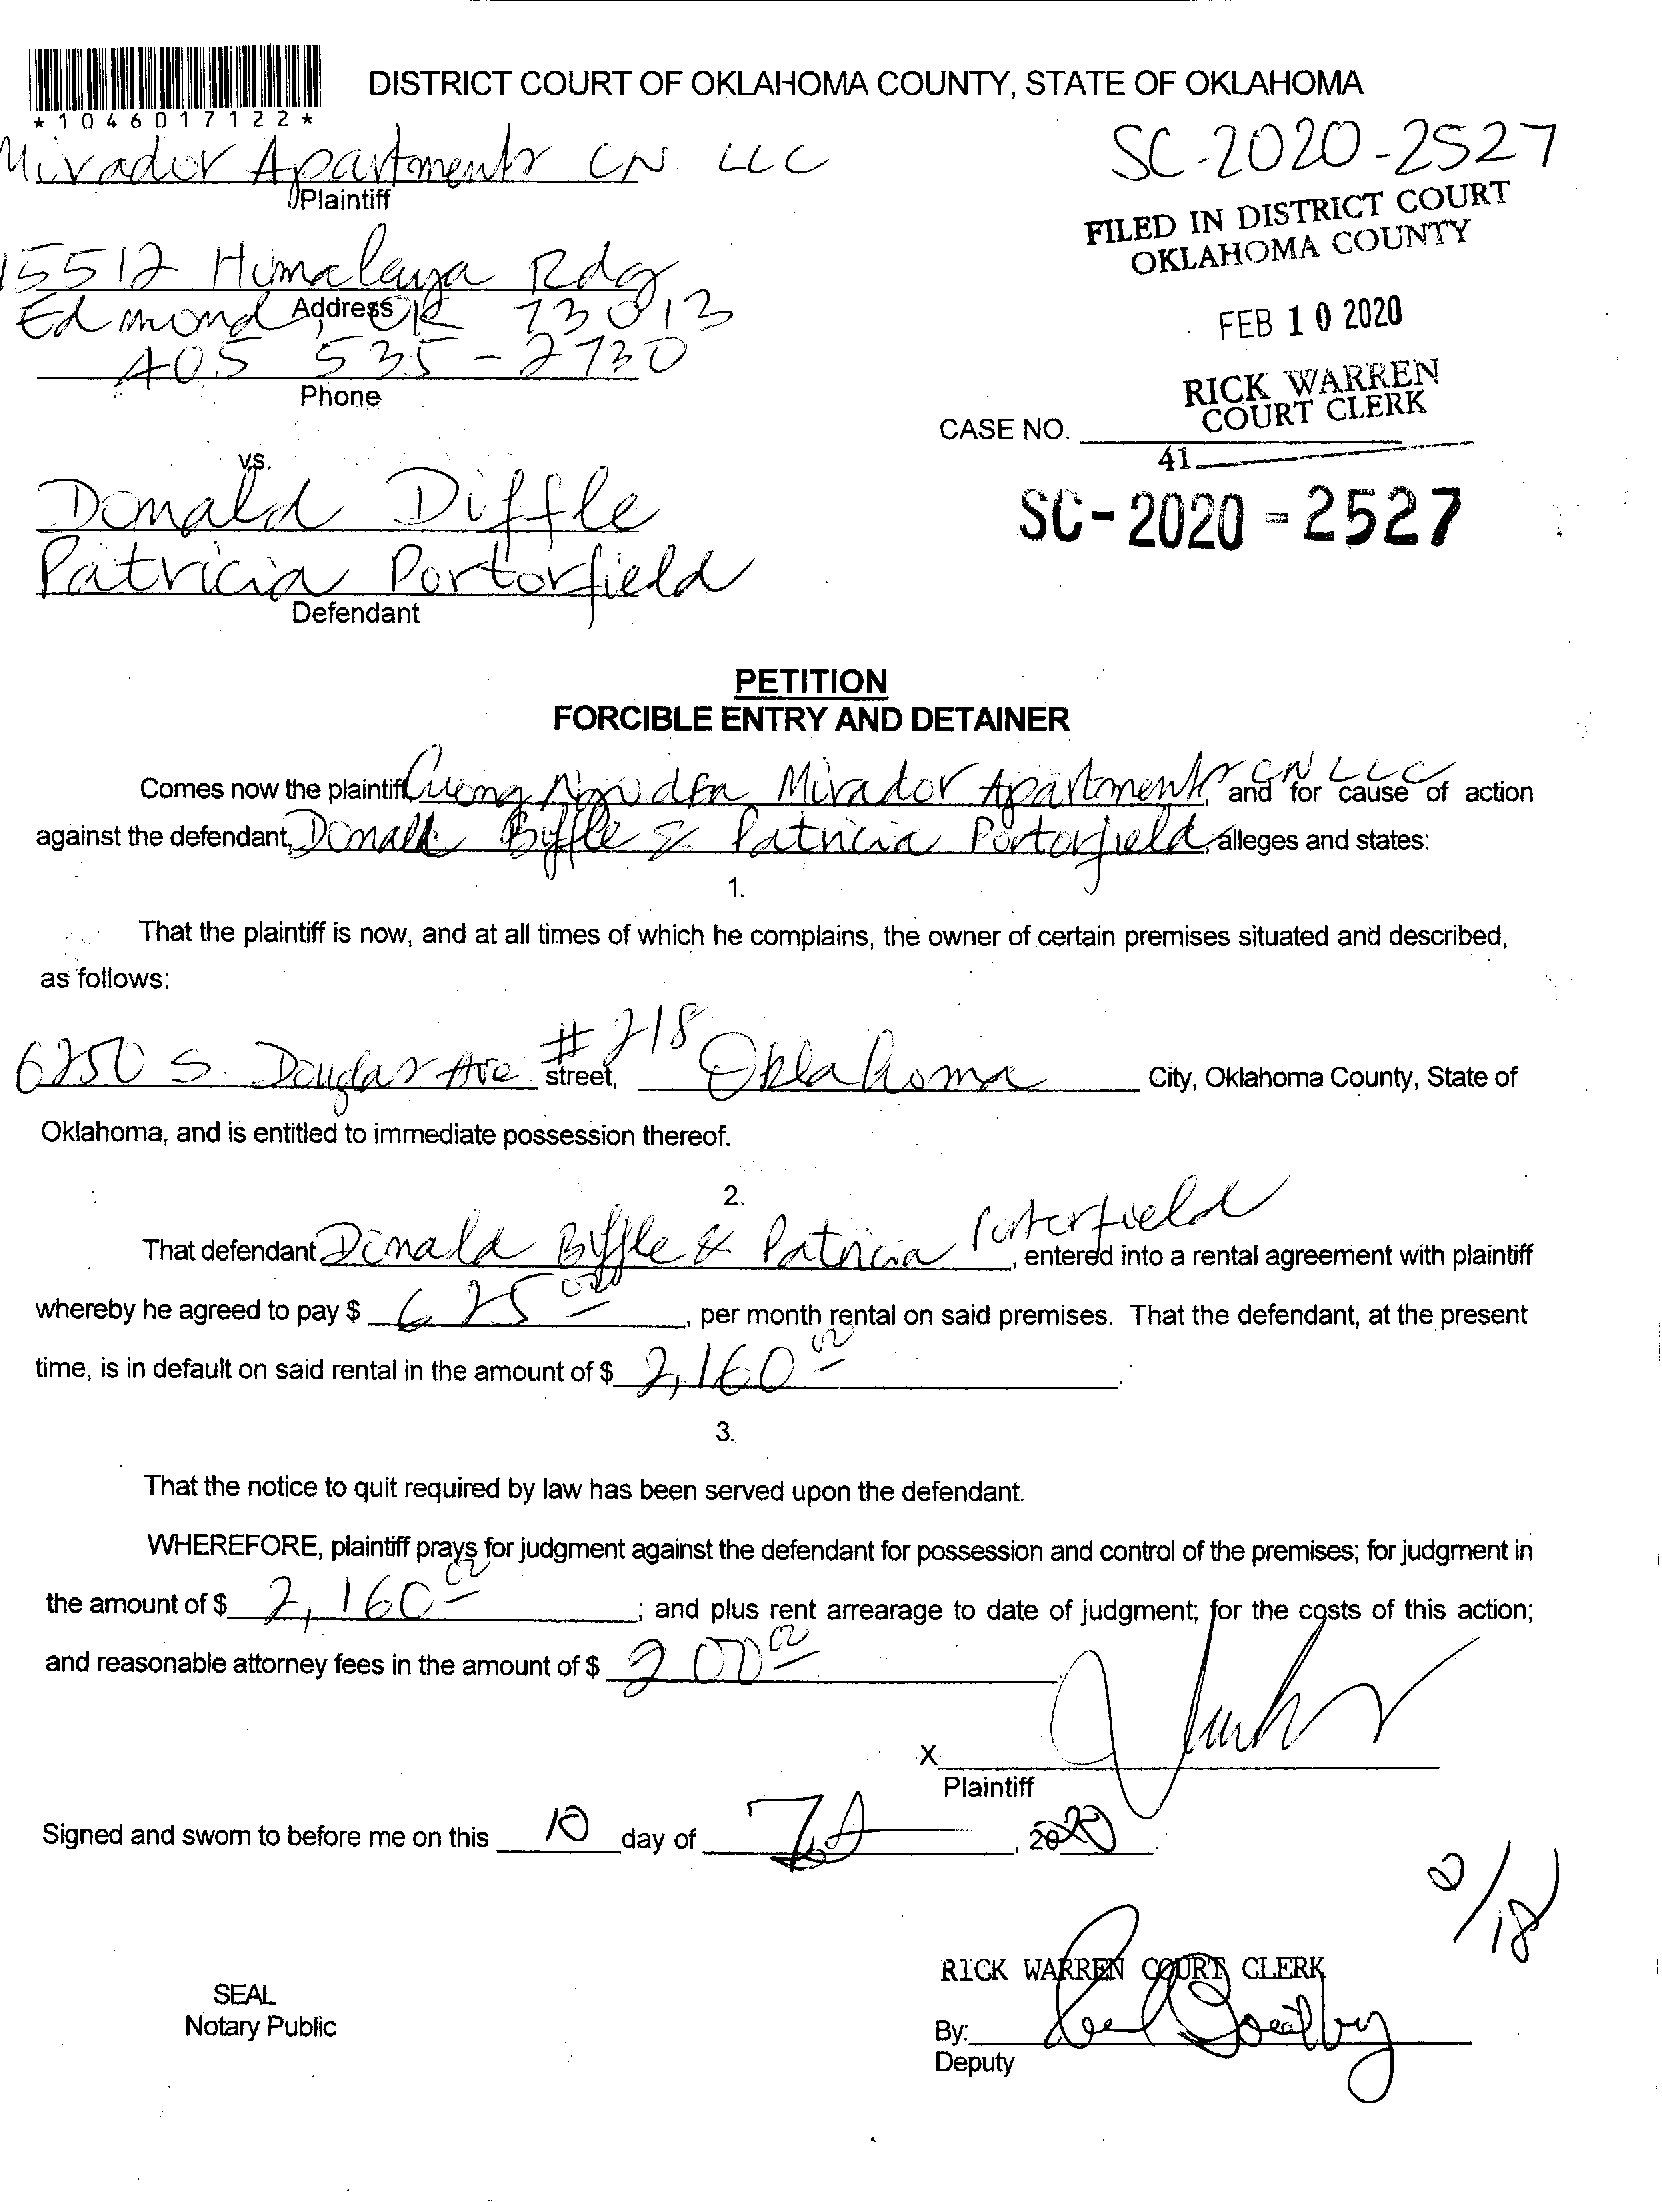 DISTRICT COURT OF OKLAHOMA COUNTY, STATE OF OKLAHOMA
*1046017122*
Mirador Apartments CN LLC
Plaintiff
SC-2020-2527
FILED IN DISTRICT COURT
OKLAHOMA COUNTY
15512 Himalaya Rdg
Address
Edmond, OK 73013
FEB 10 2020
405 535-2730
Phone
RICK WARREN
COURT CLERK
CASE NO.
41
vs.
Donald Diffle
SC-2020-2527
Patricia Portorfield
Defendant
PETITION
FORCIBLE ENTRY AND DETAINER
Comes now the plaintiff Cuong dba Mirador Apartments CN LLC, and for cause of action
against the defendant, Donald Biffle & Patricia Portorfield, alleges and states:
1.
That the plaintiff is now, and at all times of which he complains, the owner of certain premises situated and described,
as follows:
6250 S. Douglas Ave #218 street, Oklahoma City, Oklahoma County, State of
Oklahoma, and is entitled to immediate possession thereof.
2.
That defendant Donald Biffle & Patricia Porterfield, entered into a rental agreement with plaintiff
whereby he agreed to pay $ 625 00, per month rental on said premises. That the defendant, at the present
time, is in default on said rental in the amount of $ 2,160 00.
3.
That the notice to quit required by law has been served upon the defendant.
WHEREFORE, plaintiff prays for judgment against the defendant for possession and control of the premises; for judgment in
the amount of $ 2,160 00; and plus rent arrearage to date of judgment; for the costs of this action;
and reasonable attorney fees in the amount of $ 200 00
X
Plaintiff
Signed and sworn to before me on this 10 day of Feb, 2020.
RICK WARREN COURT CLERK
SEAL
Notary Public
By:
Deputy